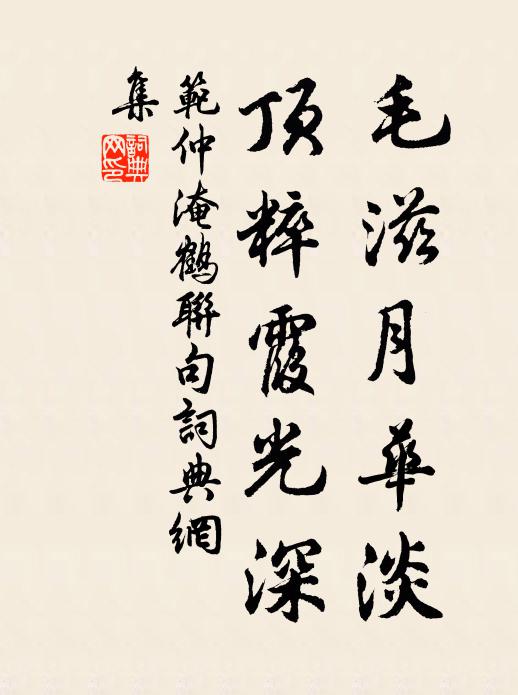 毛滋月華淡
頂粹霞光深
範仲淹鶴聯句詞典網
集
詞典
网印